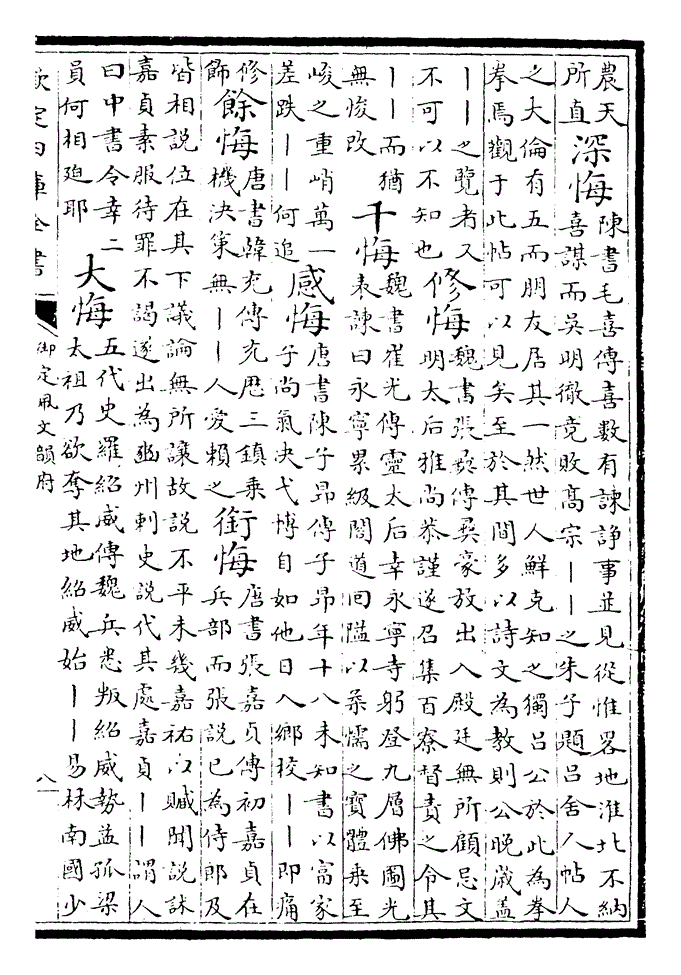 農天
所直
深悔
陳書毛喜傳喜數有諫諍事並見從惟畧地淮北不納
喜謀而吳明徹竟敗高宗丨丨之朱子題呂舍人帖人
之大倫有五而朋友居其一然世人鮮克知之獨呂公於此為拳
拳焉觀于此帖可以見矣至於其間多以詩文為教則公晚歲蓋
丨丨之覽者又
不可以不知也
修悔
魏書張彝傳彝豪放出入殿廷無所顧忌文
明太后雅尚恭謹遂召集百寮督責之令其
丨丨而猶
無悛改
千悔
魏書崔光傳靈太后幸永寧寺躬登九層佛圖光
表諫曰永寧累級閣道回隘以柔懦之寶體乘至
峻之重峭萬一
差跌丨丨何追
感悔
唐書陳子昂傳子昂年十八未知書以富家
子尚氣決弋博自如他日入鄉校丨丨即痛
修
飾
餘悔
唐書韓充傳充歷三鎮乘
機決策無丨丨人愛賴之
銜悔
唐書張嘉貞傳初嘉貞在
兵部而張說已為侍郎及
皆相說位在其下議論無所讓故說不平未幾嘉祐以贓聞說訹
嘉貞素服待罪不謁遂出為幽州刺史說代其處嘉貞丨丨謂人
曰中書令幸二
員何相廹耶
大悔
五代史羅紹威傳魏兵悉叛紹威勢益孤梁
太祖乃欲奪其地紹威始丨丨易林南國少
欽定四庫全書
御定佩文韻府
八